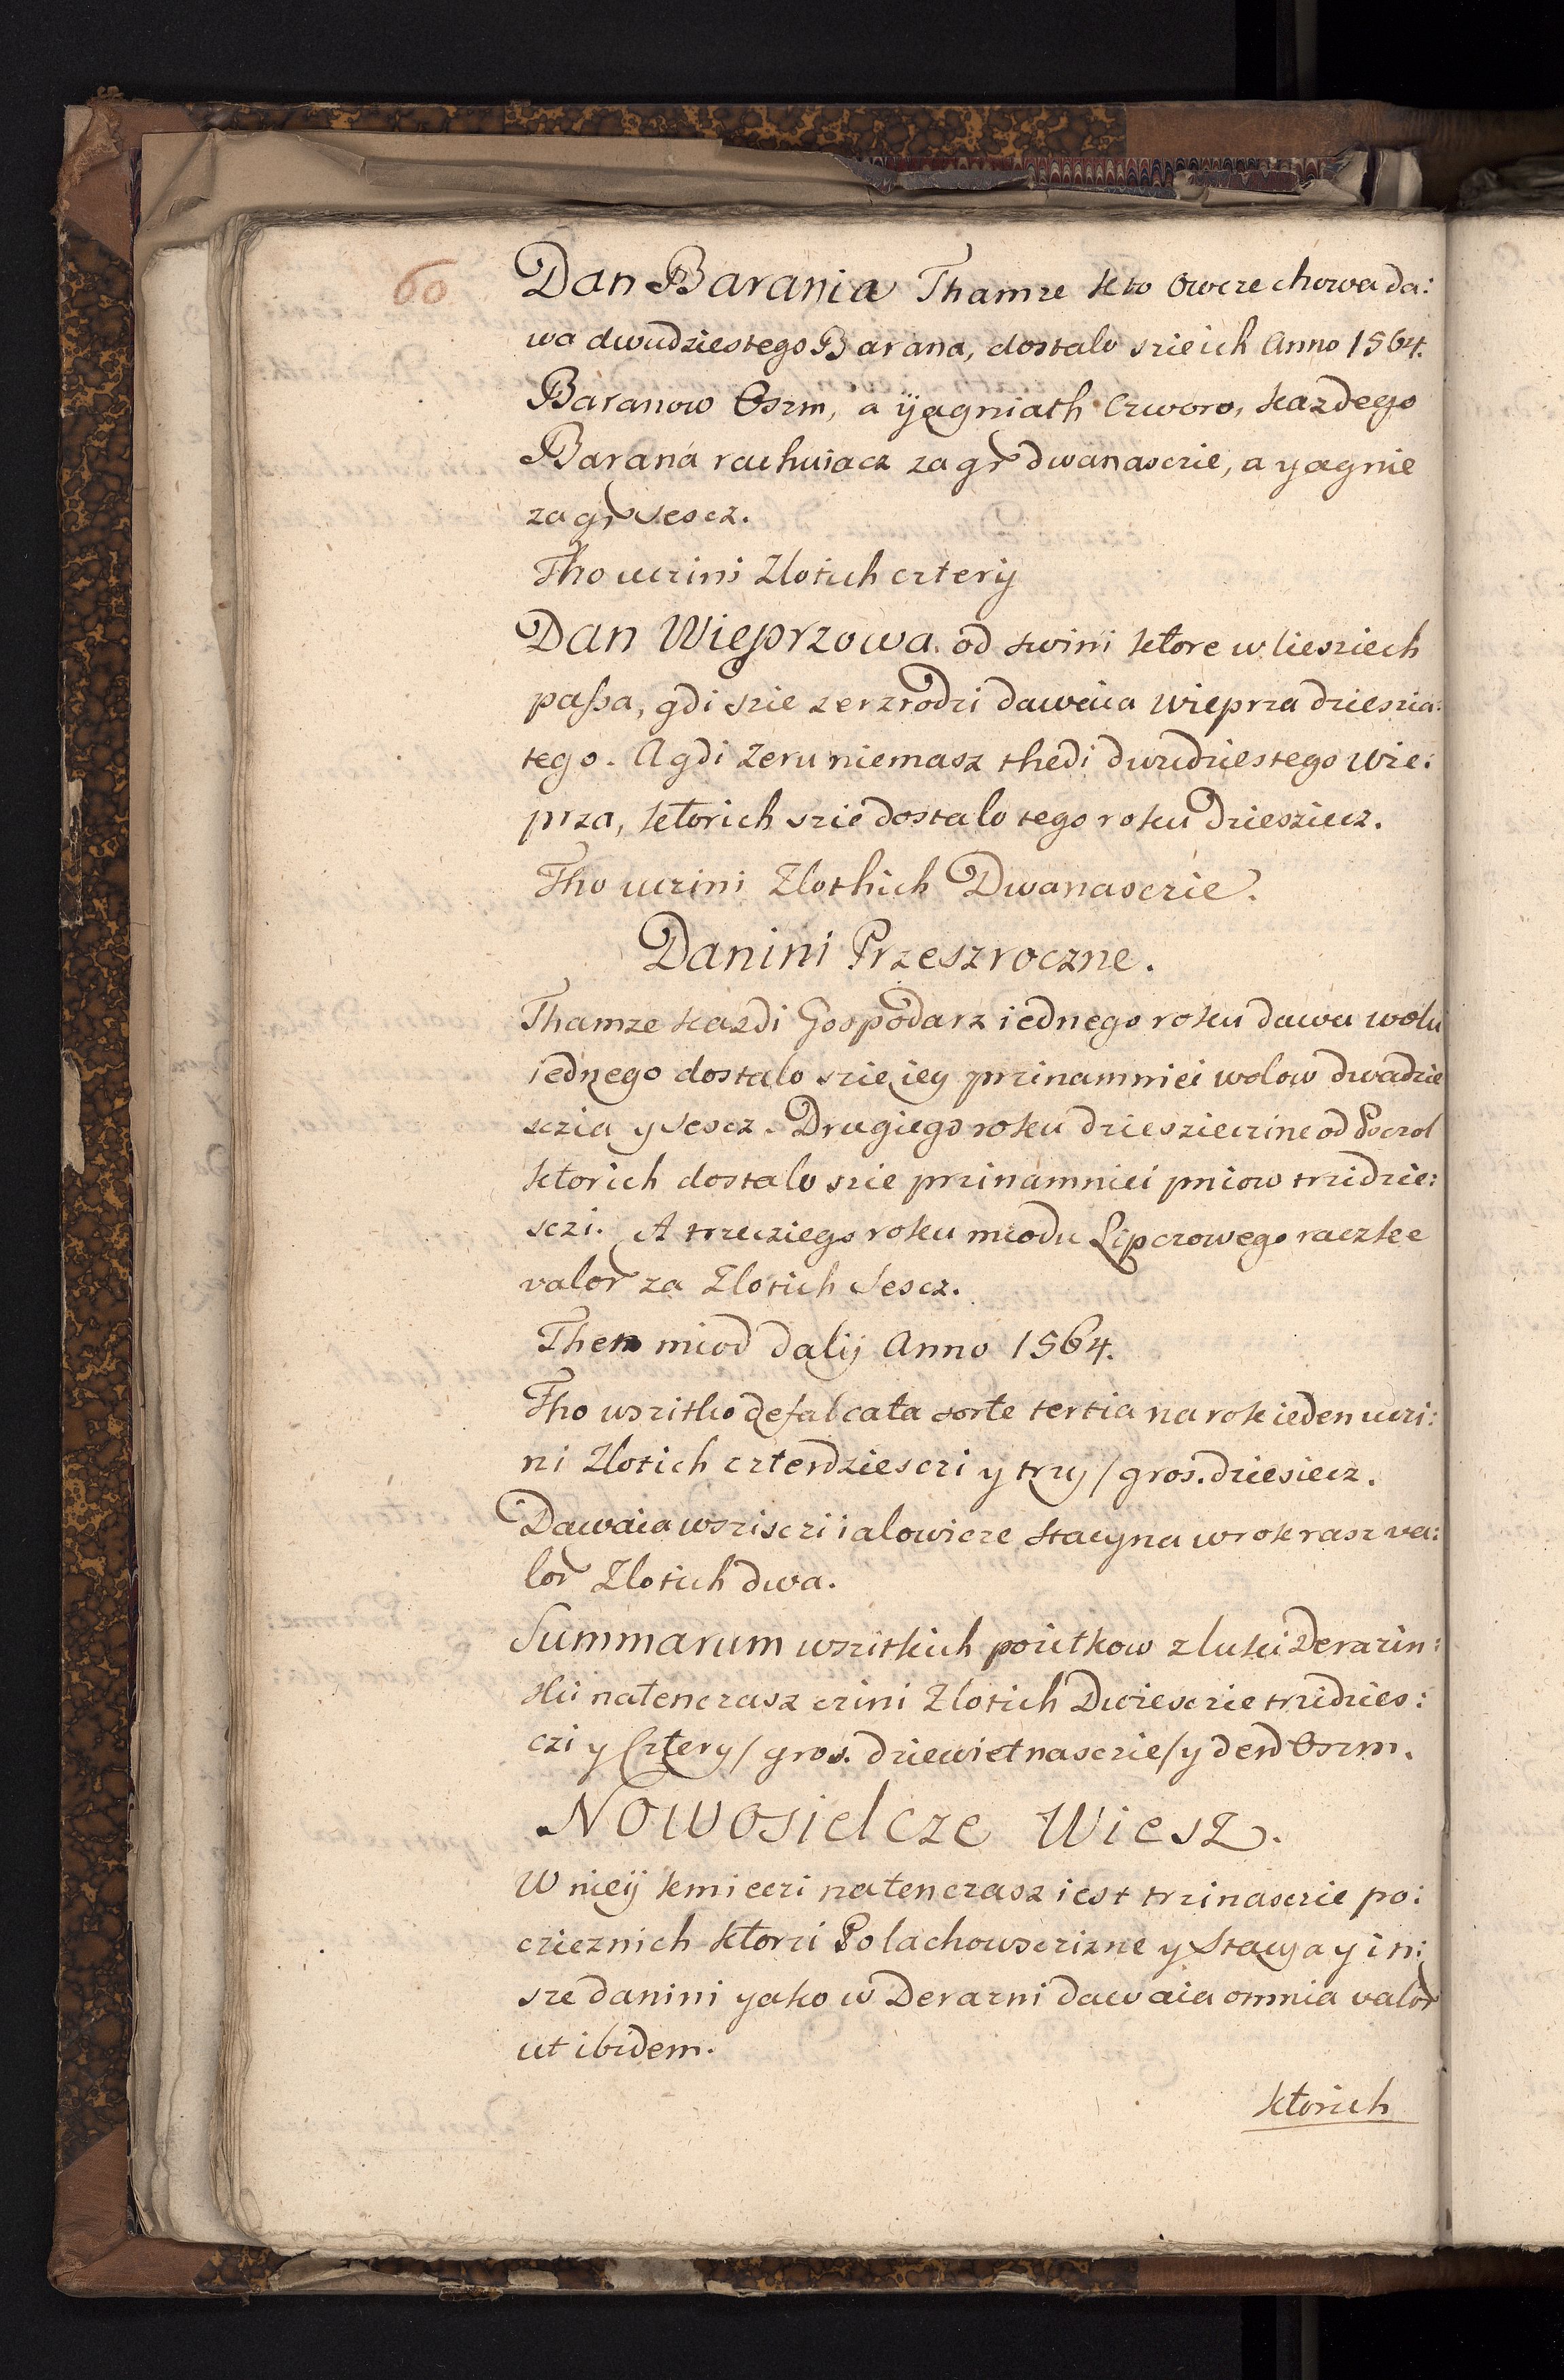 60
Dan Barania Thamze kto Owcze chowa da:
wa dwudziestego Barana, dostalo szie ich Anno 1564.
Baranow Oszm, a ÿagniath Czworo, kazdego
Baraná rachuiacz za gr dwanasczie, a yagnie
za gr Sescz.
Tho uczini Zlotich cztery
Dan Wieprzowa od swini ktore w liesziech
passa, gdi szie zerzrodzi dawaia wieprza dzieszia:
tego. A gdi Zeru niemasz thedi dwudziestego wie:
prza, ktorich szie dostalo tego roku Dziesziecz.
Tho uczini Zlothich Dwanasczie.
Danini Przeszroczne.
Thamze kazdi Gospodarz iednego roku dawa wolu
iednego dostalo szie iey przinamniei wolow dwadzie
sczia y Sescz. Drugiego roku dzieszieczine od Psczol
ktorich dostalo szie przinamniei pniow trzidzie:
sczi. A trzecziego roku miodu Lipczowego raczke
valor za Zlotich Sescz.
Then miod dalÿ Anno 1564.
Tho wszitko defalcata sorte tertia na rok ieden uczi:
ni Zlotich czterdziesczi y trzy / gros. dziesiecz.
Dawaia wszisczi ialowicze Stacyna w rok rasz va:
lor Zlotich dwa.
Summarum wszitkich pozitkow z luki Derazin:
skii natenczasz czini Zlotich Dwiesczie trzidzies:
czi y Cztery / gros. dziewietnasczie / y den Oszm.
Nowosielcze Wiesz.
W nieÿ kmieczi natenczasz iest trzinasczie po:
czieznich ktorzi Polachowsczizne y Stacya y in:
sze danini yako w Derazni dawaia omnia valor
ut ibidem.
ktorich